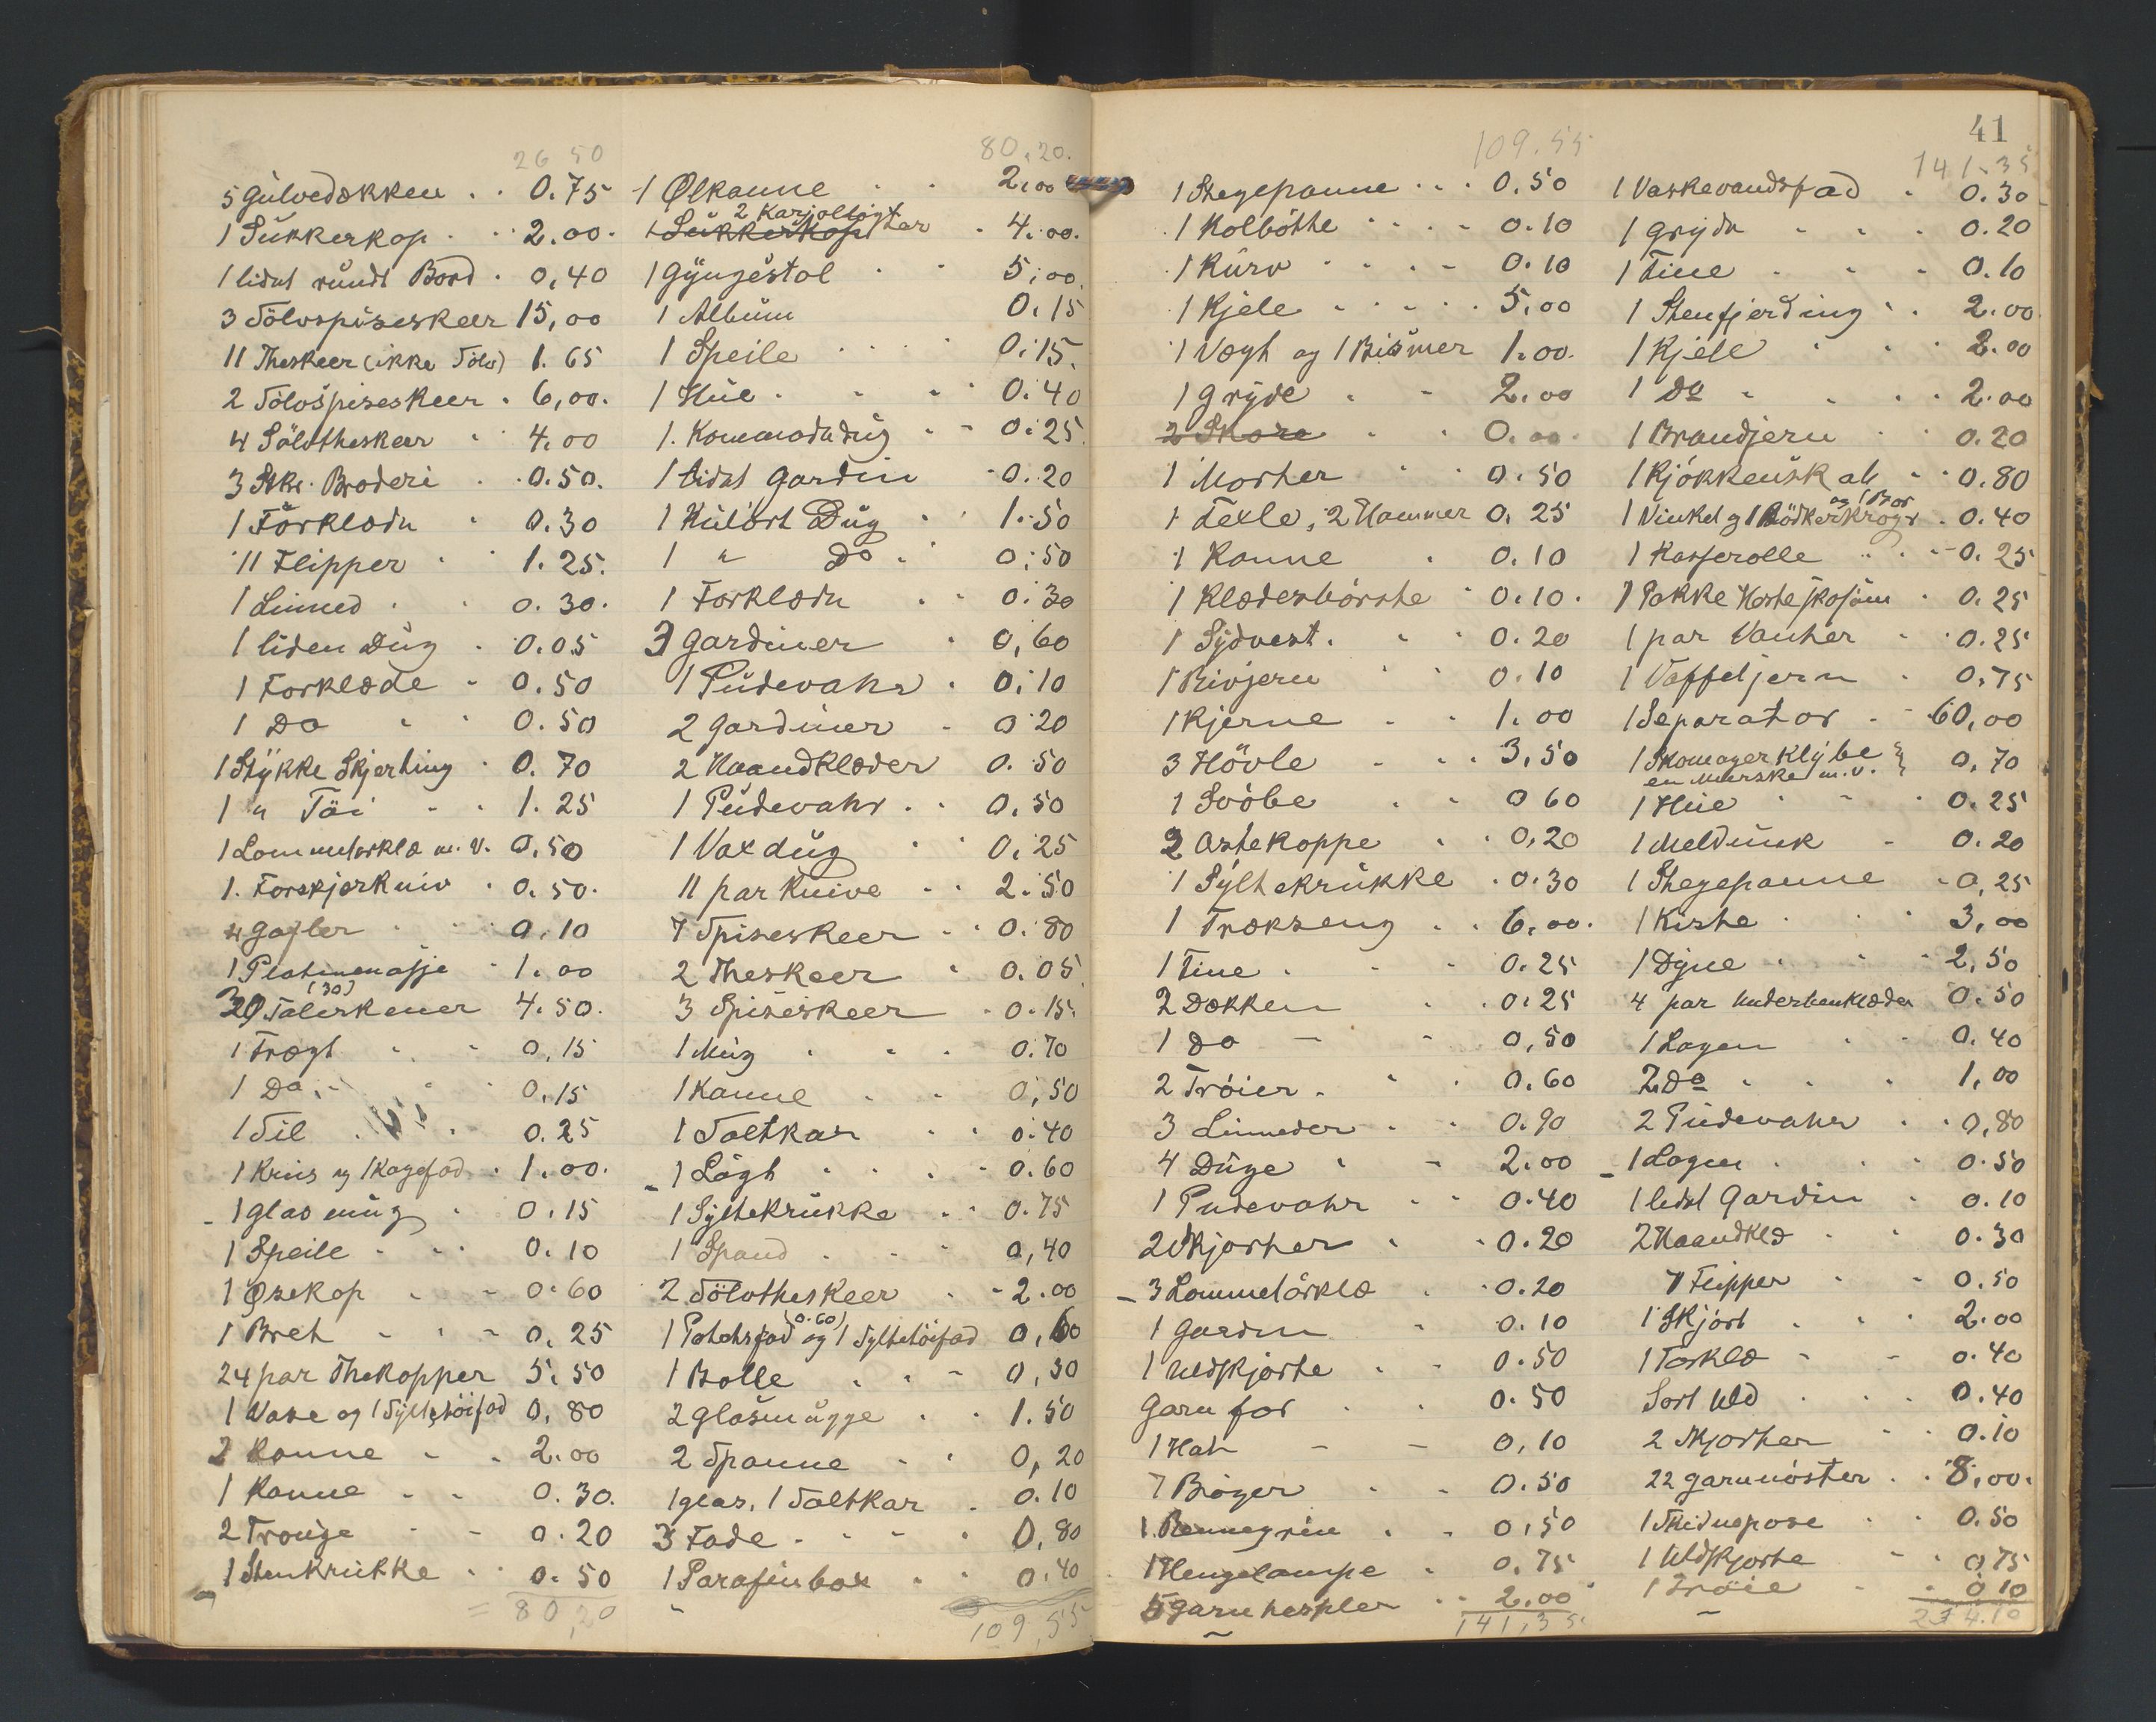 26 50
5 Gulvedækken . . 0.75
1 Sukkerkop . . 2.00.
1 lidet rundt Bord . 0,40
3 Sölvspiseskeer 15,00
11 Theskeer (ikke Sölv) 1.65
2 Sölvspiseskeer . 6,00.
4 Sölvtheskeer . 4.00
3 Stkr. Broderi . . 0.50.
1 Förklæde . 0.30
11 Flipper . 1.25.
1 Linned . . 0.30.
1 liden Dug . 0.05
1 Forklæde . 0.50
1 Do . . 0.50
1 Stykke Skjerting . 0.70
1 " Töi . . 1.25
1 Lommetorklæ m.v. 0,50
1. Forskjærkniv . 0.50.
4 Gafler . . 0.10
1 Platmenasje . 1.00
(30)
29 Talerkener 4.50.
1 Trægt . . 0,15
1 Do . . 0,15
1 Sil . . 0.25
1 Krus og 1 Kagefad . 1.00.
1 Glasmug . 0.15
1 Speile . . 0.10
1 Øsekop . . 0.60
1 Bret . . . 0.25
24 par Thekopper 5.50
1 Vase og 1 Syltetöifad 0,80
2 Kanne . . 2.00
1 Kanne . . 0.30.
2 Trouge . . 0.20
1 Stenkrukke . . 0.50
= 80,20
80,20.
1 Ølkanne . . 2.00
2 Karjolløgter
1 Sukkerkop . 4.00.
1 Gyngestol . . 5,00.
1 Album 0.15
1 Speile . . . 0.15.
1 Hue . . . 0.40
1. Kommodedug . . 0.25.
1 lidet Gardin . 0.20
1 Kulört Dug . . 1.50
1 " Do . . 0.50
1 Forklæde . . 0.30
3 Gardiner . 0,60
1 Pudevahr . 0.10
2 Gardiner . 0.20
2 Haandklæder 0.50
1 Pudevahr . . 0,50
1 Vaxdug . . 0.25
11 par Knive . . 2.50
7 Spiseskeer . . 0.80
2 Theskeer . 0.05.
3 Spiseskeer . 0.15.
1 Mug . . . 0.70
1 Kanne . . 0,50
1 Saltkar . . 0.40
1 Lögt . . . 0.60
1 Syltekrukke . . 0.75
1 Spand . . . 0,40
2 Sölvtheskeer . . 2.00
(0.60)
1 Potetsfad og 1 Syltetöifad 0,60
1 Bolle . . . 0,30
2 Glasmugge . . 1.50
2 Spanne . . 0,20
1 Glas, 1 Saltkar . 0.10
3 Fade . . . . 0,80
1 Parafinbox . . 0.40
109,55
109.55
1 Stegepanne . . . 0.50
1 Kolbötte . . . . 0.10
1 Kurv . . . . 0.10
1 Kjele . . . . 5.00
1 Vægt og 1 Bismer 1.00.
1 Gryde . . 2.00
2 Skore . . 0.00.
1 Morter . . 0.50
1 Texle, 2 Hammer 0.25
1 Kanne . 0.10
1 Klædesbörste . 0.10.
1 Sydvest . . . 0.20
1 Rivjern . . 0.10
1 Kjerne . . 1.00
3 Hövle . . . 3,50
1 Svöbe . . 0 60
2 Ostekoppe . . 0,20
1 Syltekrukke . 0.30
1 Trækseng . . 6.00.
1 Tine . . . 0.25
2 Dækken . . 0.25
1 Do - - 0,50
2 Tröier . . . 0.60
3 Linneder . . 0.90
4 Duge . . 2.00
1 Pudevahr . . 0.40
2 Skjorter . . 0.20
3 Lommetörklæ . . 0.20
1 Gardin . 0.10
1 Uldskjorte . . 0.50
Garn for . . 0.50
1 Hat - - 0,10
7 Böger . . 0.50
1. Rennegrin . . 0.50
1 Hengelampe . 0.75
5 Garnhespler . . 2.00
141,35.
41
141.35
1 Vaskevandsfad . 0.30
1 Gryde . . . 0.20
1 Tine . . . 0.10
1 Stenfjerding . . 2.00
1 Kjele . . . 2.00
1 Do . . . . 2.00
1 Brandjern . . 0.20
1 Kjökkenskab . . 0.80
og 1 Bor
1 Vinkel og 1 Bödkerkrogr . 0.40
1 Kasserolle . . . 0.25
1 Pakke Hesteskosöm . 0.25
1 par Vanter . . 0.25
1 Vaffeljern . 0.75
1 Separator . . 60,00
1 Skomagerklybe } 0,70
en Merske m.v.
1 Hue . . . 0.25
1 Meldunk . 0.20
1 Stegepanne . 0,25
1 Kiste . . . 3,00
1 Dyne . . . 2,50
4 par Underbenklæder 0.50
1 Lagen . . 0.40
2 Do . . . 1,00
2 Pudevahr . . 0,80
1 Lagen . . . 0.50
1 lidet Gardin . 0.10
2 Haandklæ . . 0.30
7 Flipper . . 0.50
1 Skjört . . . 2.00
1 Forklæ . . 0.40
Sort Uld . . . 0.40
2 Skjorter . . 0.10
22 Garnnöster . . 8,00.
1 Skidnepose . . 0.50
1 Uldskjorte . . 0.75
1 Tröie . . 0 10
234.10